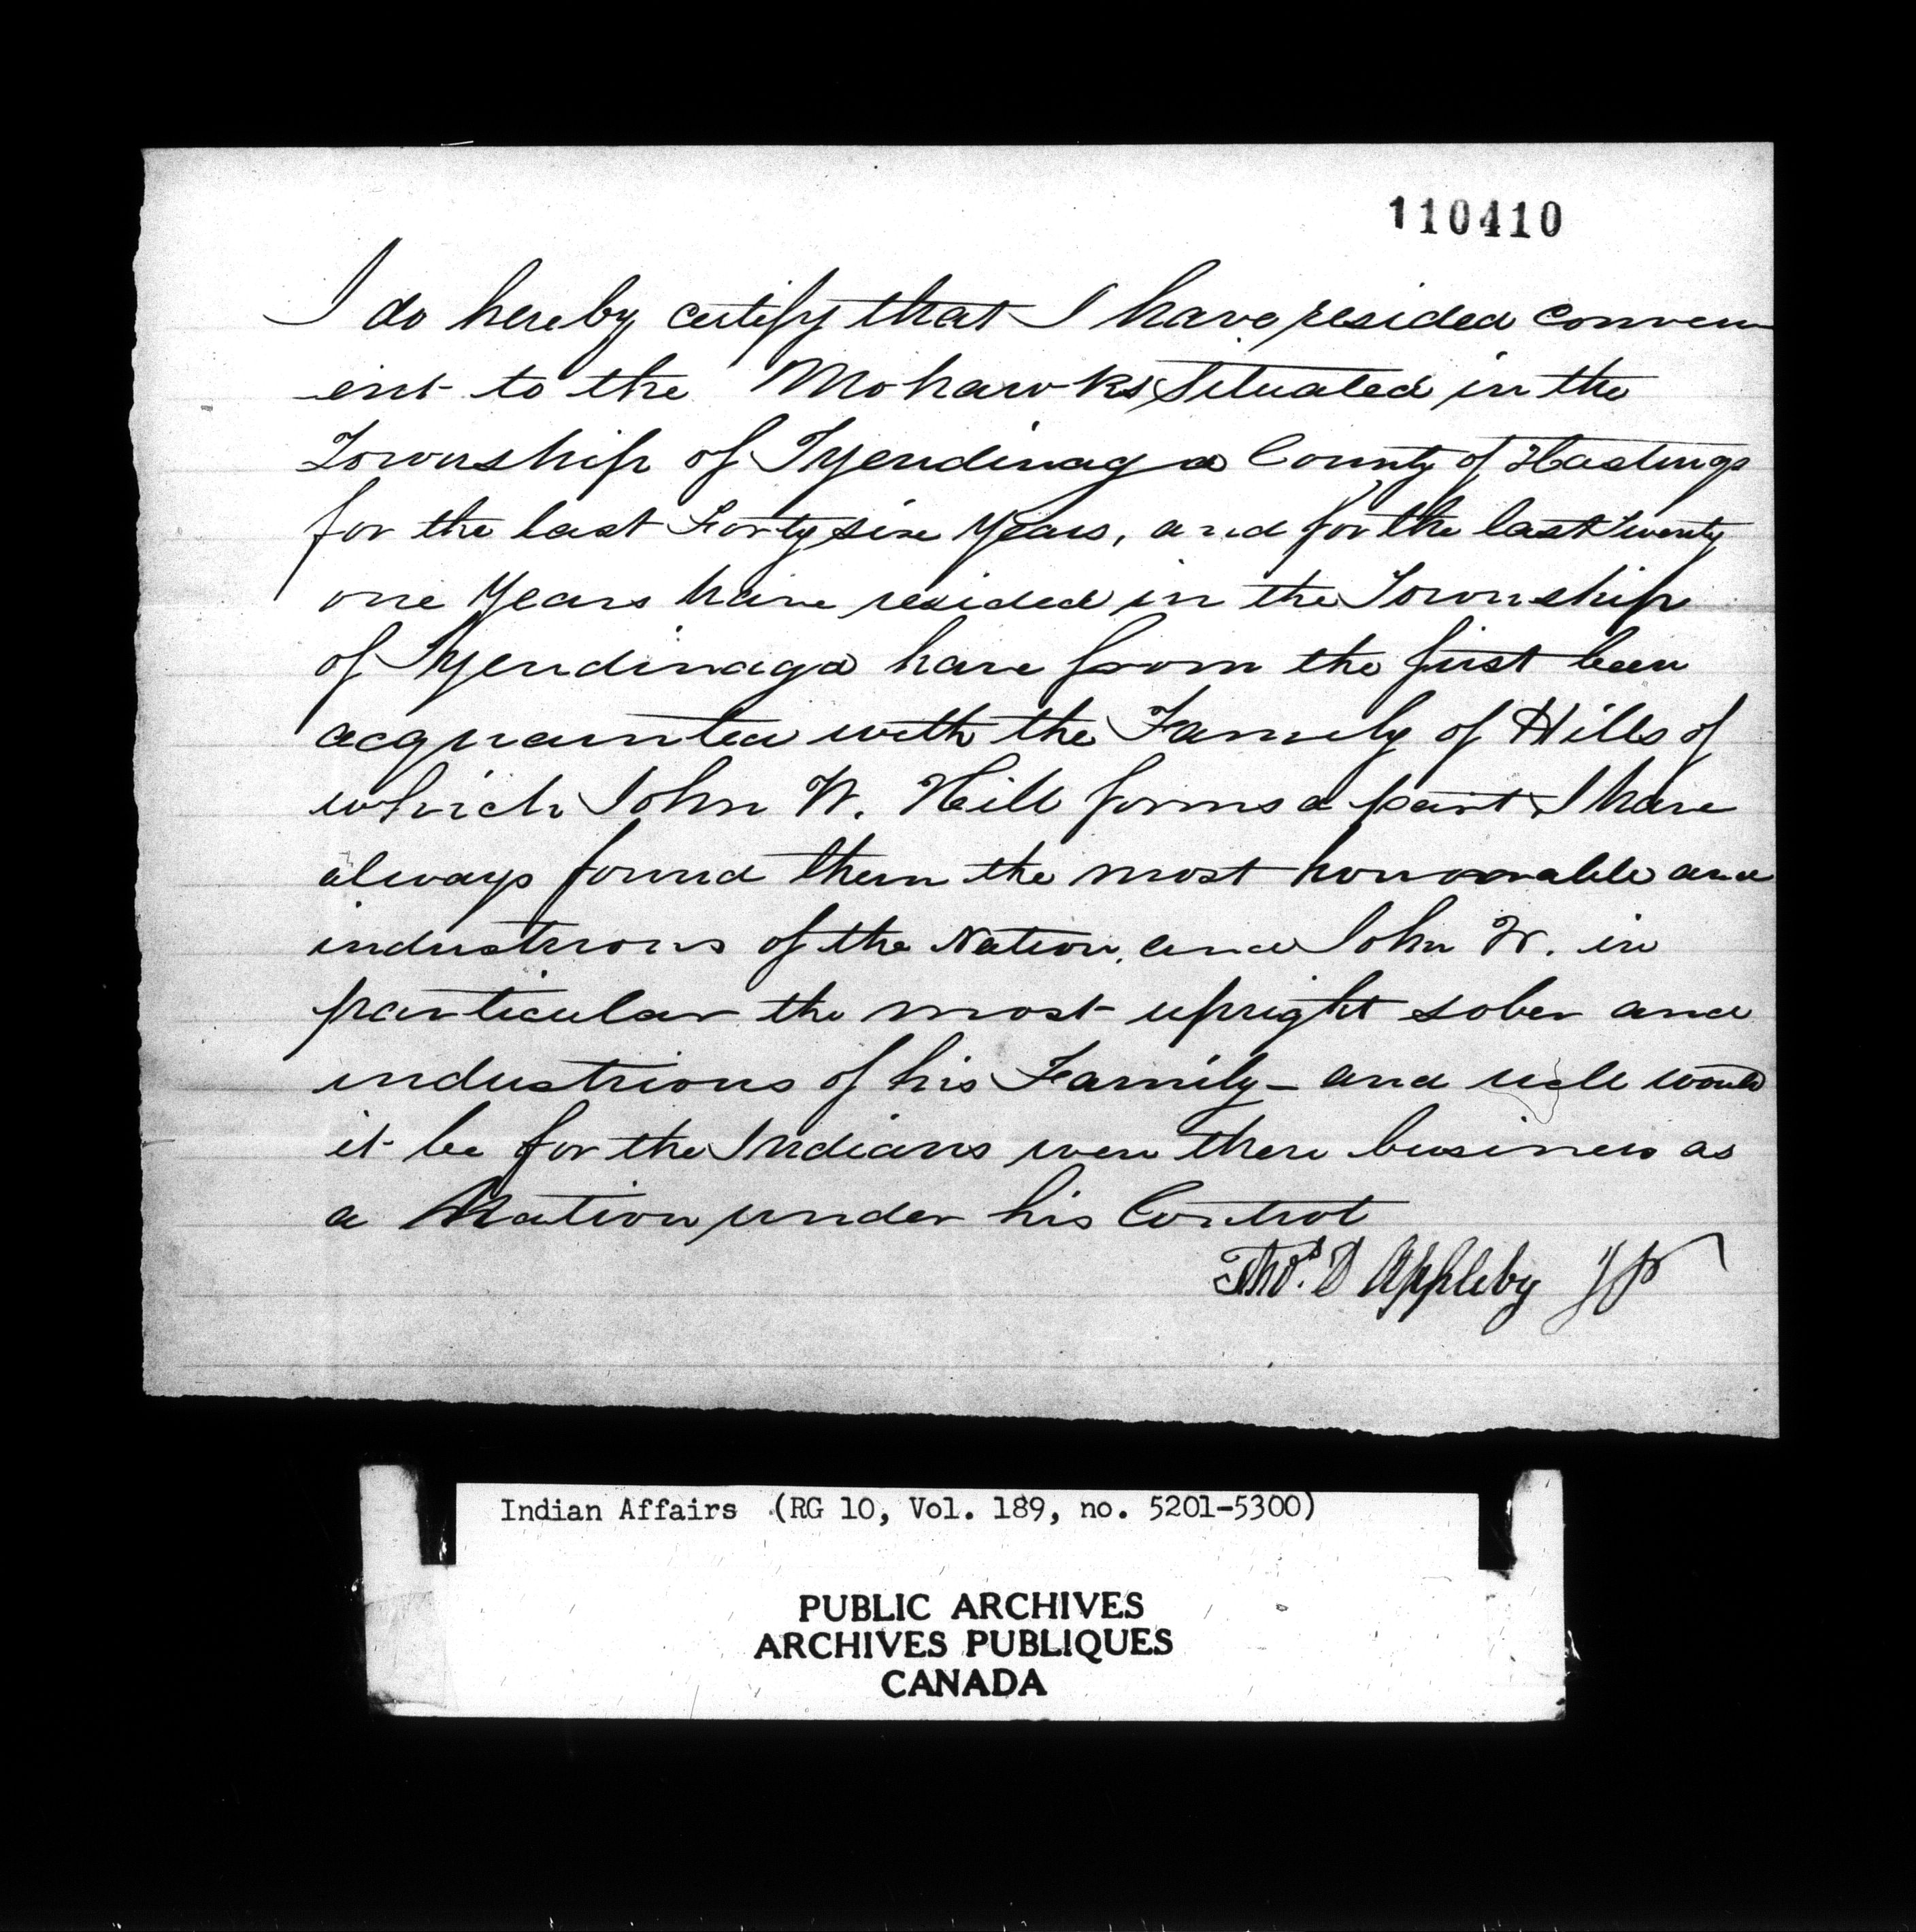 110410
I do hereby certify that I have resided conven
ient to the Mohawks Situated in the
Township of Tyendinaga County of Hastings
for the last Forty six Years, and for the last twenty
one Years have resided in the Township
of Tyendinaga have from the first been
acquainted with the Family of Hills of
which John W. Hill forms a part I have
always found them the most honorable and
industrious of the Nation, and John W. in
particular the most upright sober and
industrious of his Family - and well would
it be for the Indians were there business as
a Nation under his Control
Thos. D Appleby JP
Indian Affairs (RG 10, Vol. 189, no. 5201-5300)
PUBLIC ARCHIVES
ARCHIVES PUBLIQUES
CANADA